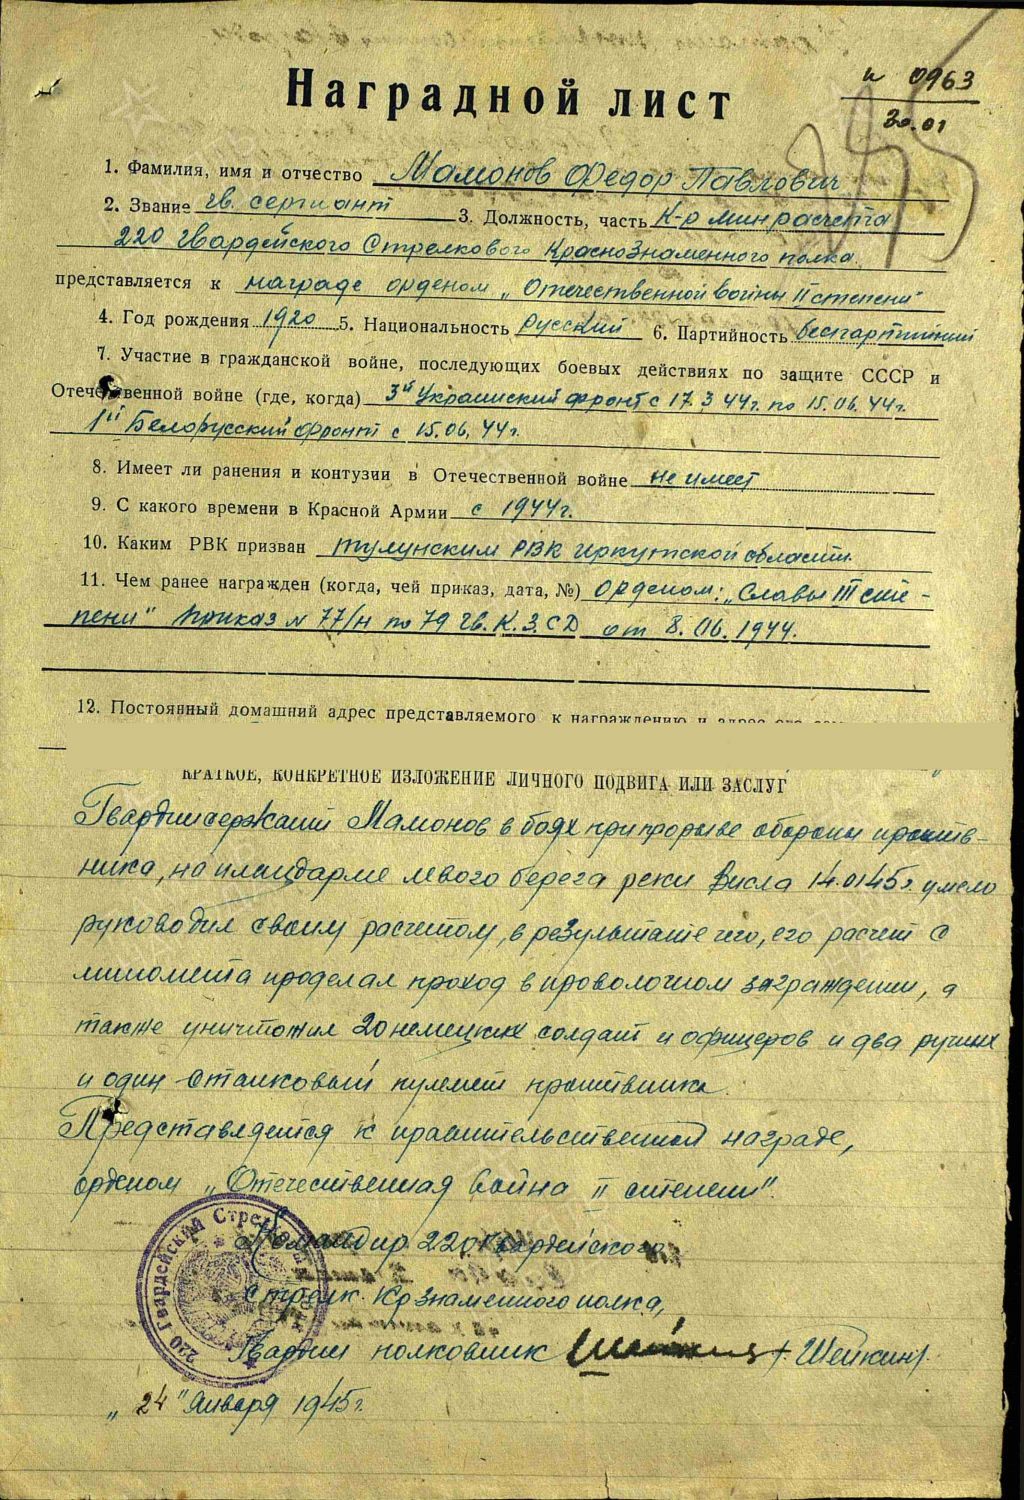 и 0963
30.01
Наградной лист
1. Фамилия, имя и отчество Мамонов Федор Павлович
2. Звание гв. сержант 3. Должность, часть К-р минрасчета
220 гвардейского Стрелкового Краснознаменного полка
представляется к награде орденом „Отечественной войны II степени"
4. Год рождения 1920 5. Национальность Русский 6. Партийность беспартийный
7. Участие в гражданской войне, последующих боевых действиях по защите СССР и
Отечественной войне (где, когда) 3й Украинский фронт с 17.3 44г. по 15.06.44г.
1й Белорусский фронт с 15.06.44г.
8. Имеет ли ранения и контузии в Отечественной войне не имеет
9. С какого времени в Красной Армии с 1944г.
10. Каким РВК призван Тулунским РВК Иркутской области.
11. Чем ранее награжден (когда, чей приказ, дата, №) орденом: „Славы III сте-
пени" приказ № 77/н по 79 гв. К.З.СД от 8.06.1944.
12. Постоянный домашний адрес представляемого к награждению и адрес его
КРАТКОЕ, КОНКРЕТНОЕ ИЗЛОЖЕНИЕ ЛИЧНОГО ПОДВИГА ИЛИ ЗАСЛУГ
Гвардии сержант Мамонов в боях при прорыве обороны против-
ника, на плацдарме левого берега реки Висла 14.01.45г. умело
руководил своим расчетом, в результате чего, его расчет с
миномета проделал проход в проволочном заграждении, а
также уничтожил 20 немецких солдат и офицеров и два ручных
и один станковый пулемет противника.
Представляется к правительственной награде,
орденом „Отечественная война II степени".
Командир 220 Гвардейского
Стрелк. Кр знаменного полка,
Гвардии полковник /Шейкин/.
„24" Января 1945г.
220 Гвардейский Стрелковый